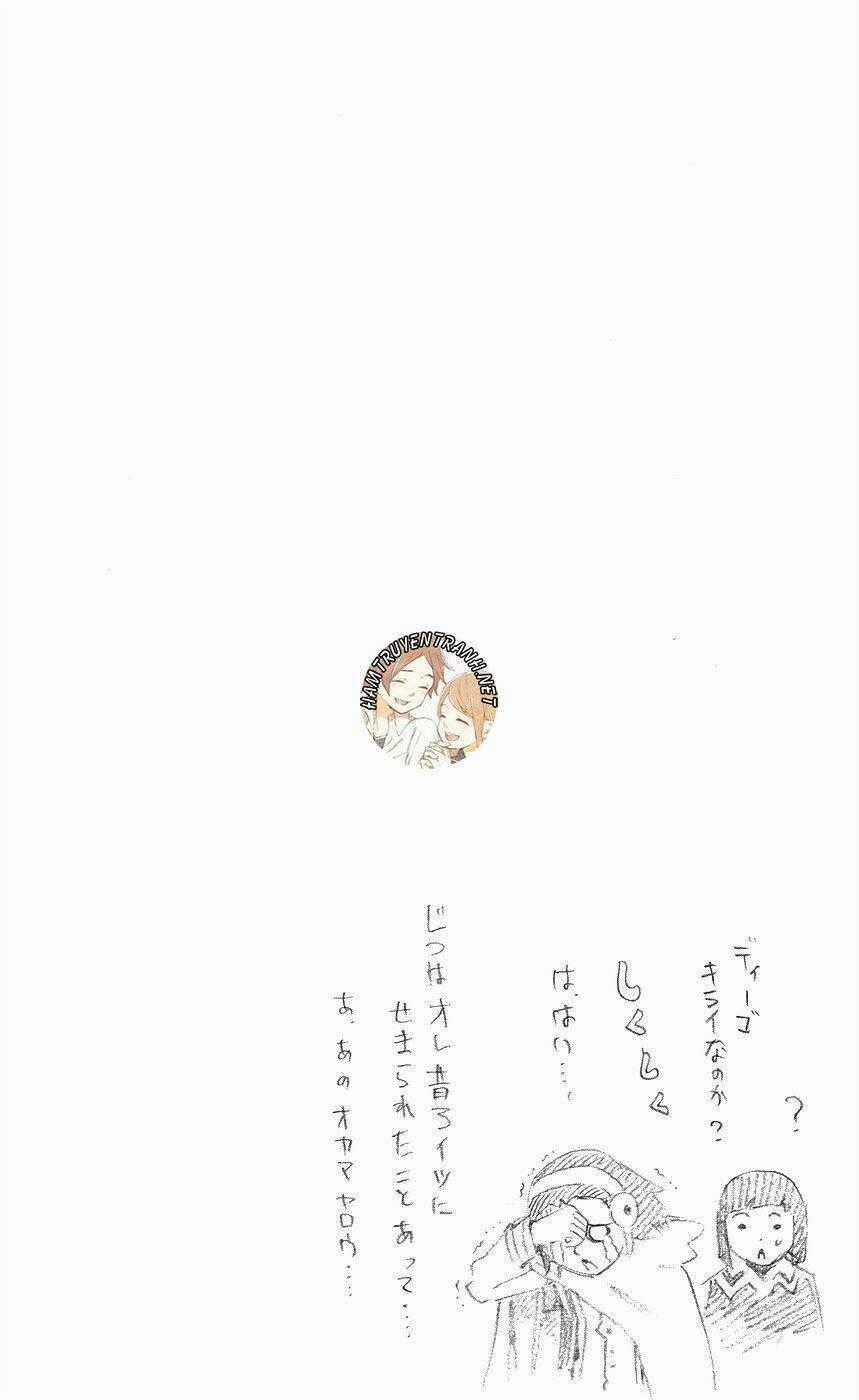 ?
ディーゴ
キライなのか?
しくしく
は、はい…
じつはオレ昔アイツに
せまられたことあって…
あ、あのオカマヤロウ…
HAMTRUYENTRANH.NET